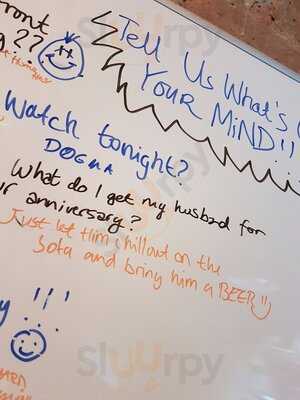 Front
??
Tell Us What's
YOUR MiND!!
Watch tonight?
DOGMA
What do I get my husband for
ur anniversary?
Just let Him chillout on the
Sofa and bring him a BEER
y !!!
Sluurpy
Sluurpy